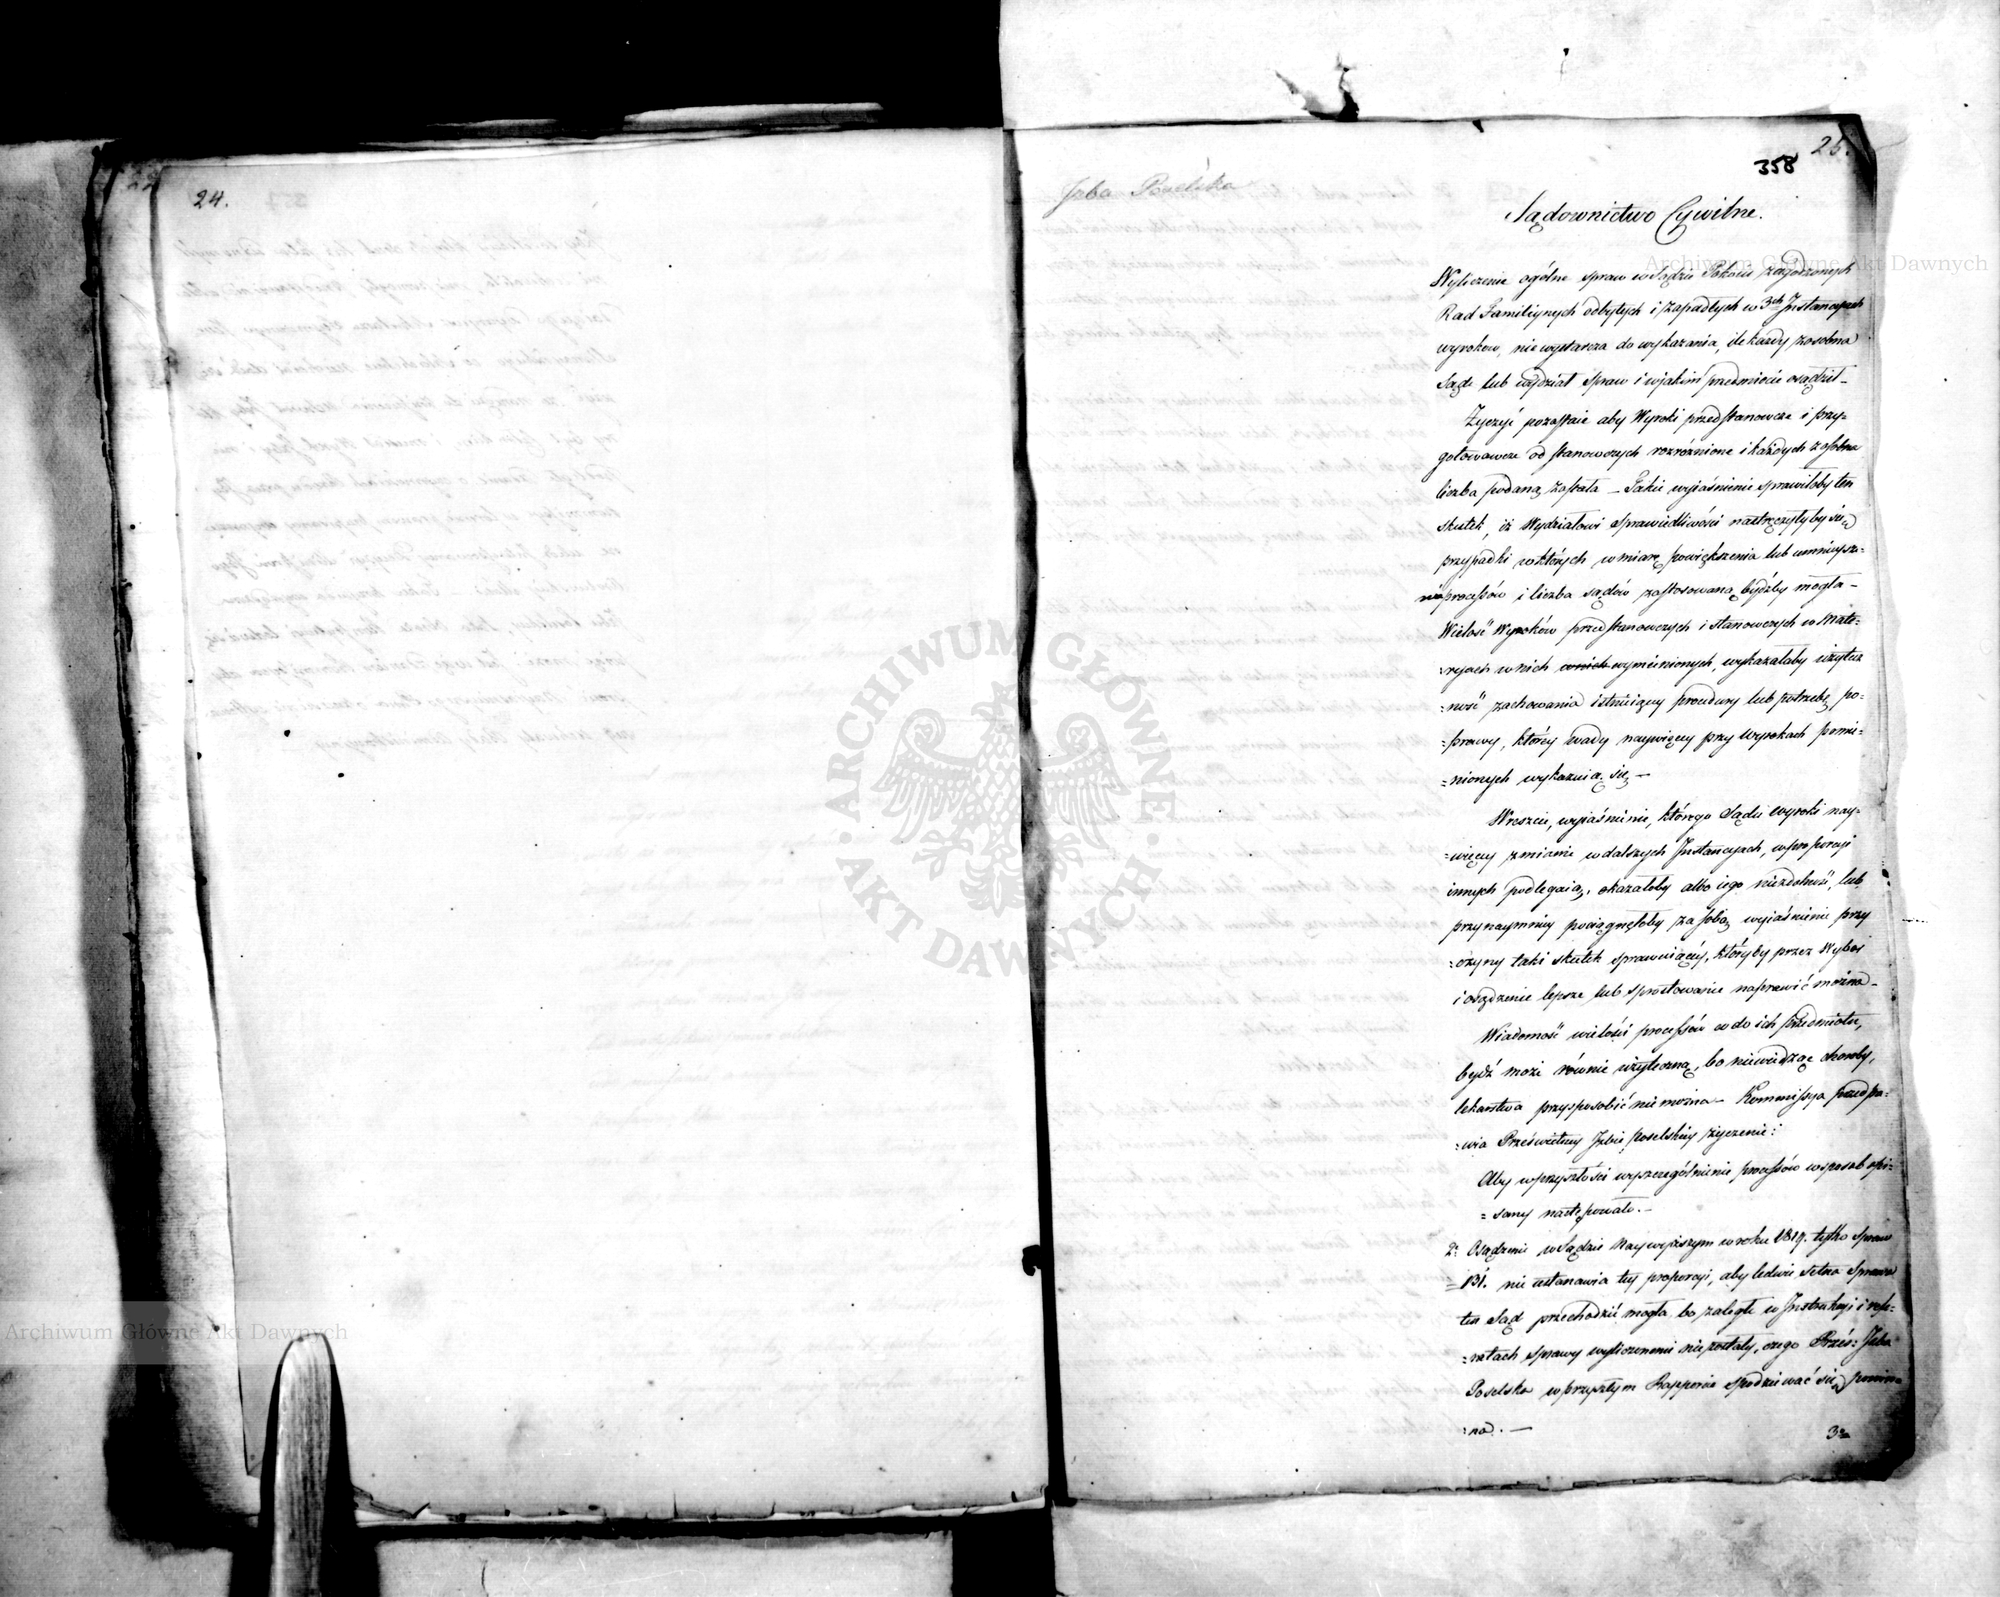 24.
358
25.
Izba Poselska
Sądownictwo Cywilne.
Wyliczenie ogólne spraw w Sądzie Pokoiu zagodzonych
Rad Familiynych odbytych i zapadłych w 3ch Instancyach
wyrokow, nie wystarcza do wykazania, ile każdy zosobna
Sąd lub wydział spraw i w jakim przedmiocie osądził –
Życzyć pozostaie aby Wyroki przedstanowcze i przy=
gotowawcze od stanowczych rozróżnione i każdych zosobna
liczba podaną została – Takie wyiaśnienie sprawiłoby ten
skutek, iż Wydziałowi Sprawiedliwości nastręczyłyby się
przypadki w których w miarę powiększenia lub umnieysze=
nia processów i liczba sądów zastosowaną bydźby mogła –
Wielość Wyroków przedstanowczych i stanowczych w Mate=
=ryach w nich w nich wymienionych, wykazałaby użytecz
=ność zachowania istnieiącey procedury lub potrzebę po=
=prawy, którey wady naywięcey przy Wyrokach pomie=
=nionych wykazuią się –
Wreszcie, wyiaśnienie, którego Sądu wyroki nay=
=więcey zmianie w dalszych Instancyach, w proporcyi
innych podlegaią, okazałoby albo iego niezdolność, lub
przynaymniey pociągnęłoby za sobą wyiaśnienie przy
=czyny taki skutek sprawuiącéy, któryby przez Wybor
i osądzenie lepsze lub sprostowanie naprawić można –
Wiadomość wielości processów co do ich przedmiotu,
bydź może równie użyteczną, bo niewiedząc choroby,
lekarstwa przysposobić nie można – Kommissya przedsta=
=wia Prześwietney Izbie Poselskiey życzenie:
Aby w przyszłości wyszczególnienie processów w sposób opi=
=sany następowało. –
2° Osądzenie w Sądzie Naywyższym w roku 1819. tylko spraw
=131. nie ustanawia tey proporcyi, aby ledwie setna Sprawa
ten Sąd przechodzić mogła, bo zaległe w Instrukcyi i refe=
=ratach sprawy wyliczonemi nie zostały, czego Prześ: Izba
Poselska w przyszłym Rapporcie spodziewać się powin=
=na. –
3°
Archiwum Główne Akt Dawnych
Archiwum Główne Akt Dawnych
ARCHIWUM GŁÓWNE
AKT DAWNYCH